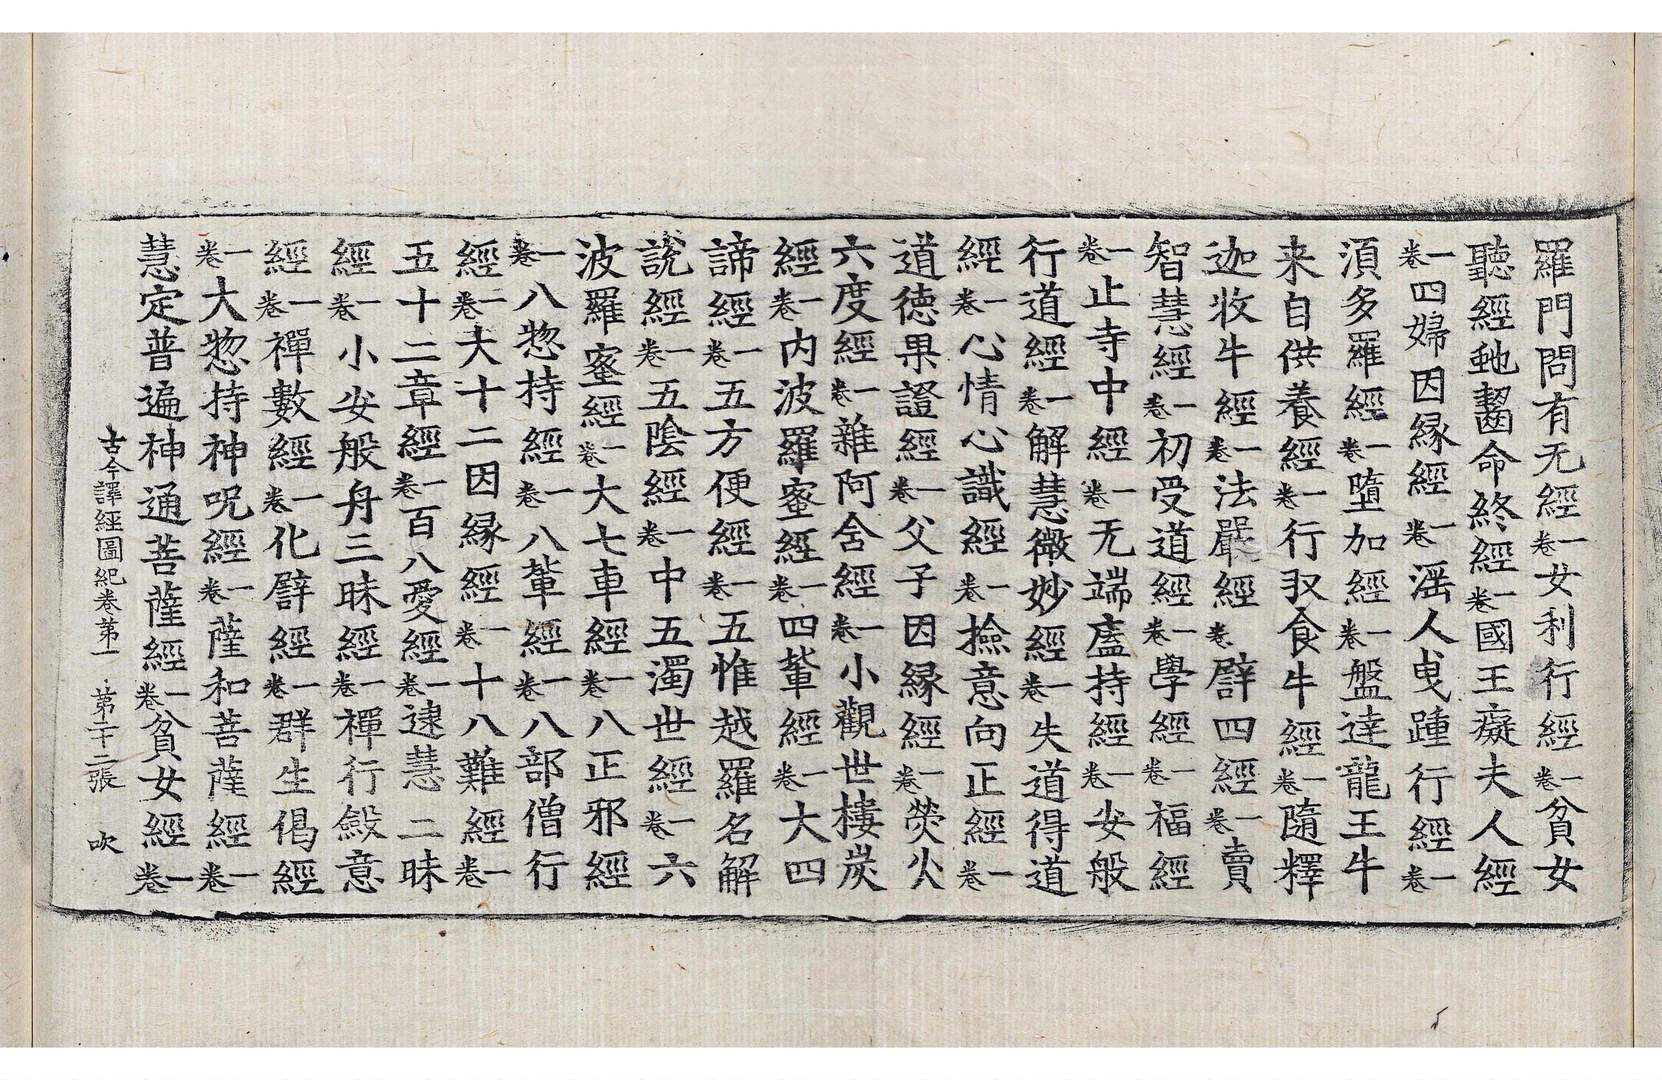 羅門問有无經一卷女利行經一卷貧女
聽經虵齧命終經一卷國王癡夫人經
一卷四婦因縁經一卷滛人曳踵行經一卷
湏多羅經一卷墮加經一卷盤達龍王牛
来自供養經一卷行㕛食牛經一卷隨釋
迦收牛經一卷法嚴經一卷譬四經一卷賣
智慧經一卷初受道經一卷學經一卷福經
一卷止寺中經一卷无端底持經一卷安般
行道經一卷解慧微妙經一卷失道得道
經一卷心情心識經一卷撿意向正經一卷
道徳果證經一卷父子因縁經一卷熒火
六度經一卷雜阿舍經一卷小觀世樓炭
經一卷内波羅蜜經一卷四軰經一卷大四
諦經一卷五方便經一卷五惟越羅名解
說經一卷五陰經一卷中五濁世經一卷六
波羅蜜經一卷大七車經一卷八正邪經
一卷八惣持經一卷八軰經一卷八部僧行
經一卷大十二因縁經一卷十八難經一卷
五十二章經一卷百八愛經一卷逮慧二昧
經一卷小安般舟三昧經一卷禪行斂意
經一卷禪數經一卷化譬經一卷群生偈經
一卷大惣持神呪經一卷薩和菩薩經一卷
慧定普遍神通菩薩經一卷貧女經一卷
古今譯經圖紀卷第一 第十二張 吹